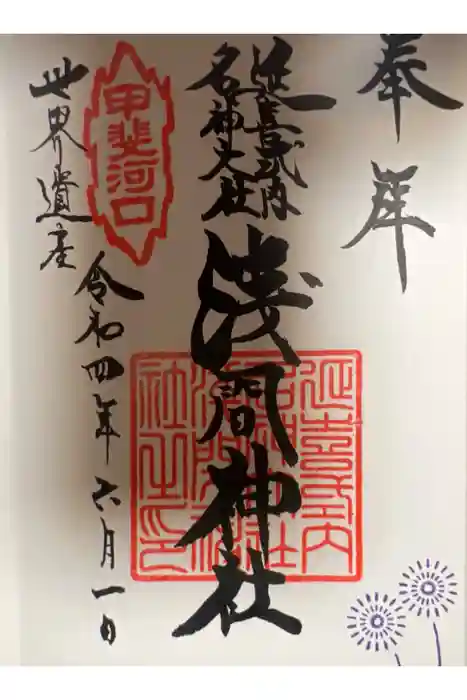 奉拜
延喜式内
名神大社
浅間神社
延喜式内
名神大社
浅間神
社之印
甲斐河口
世界遺産
令和四年六月一日